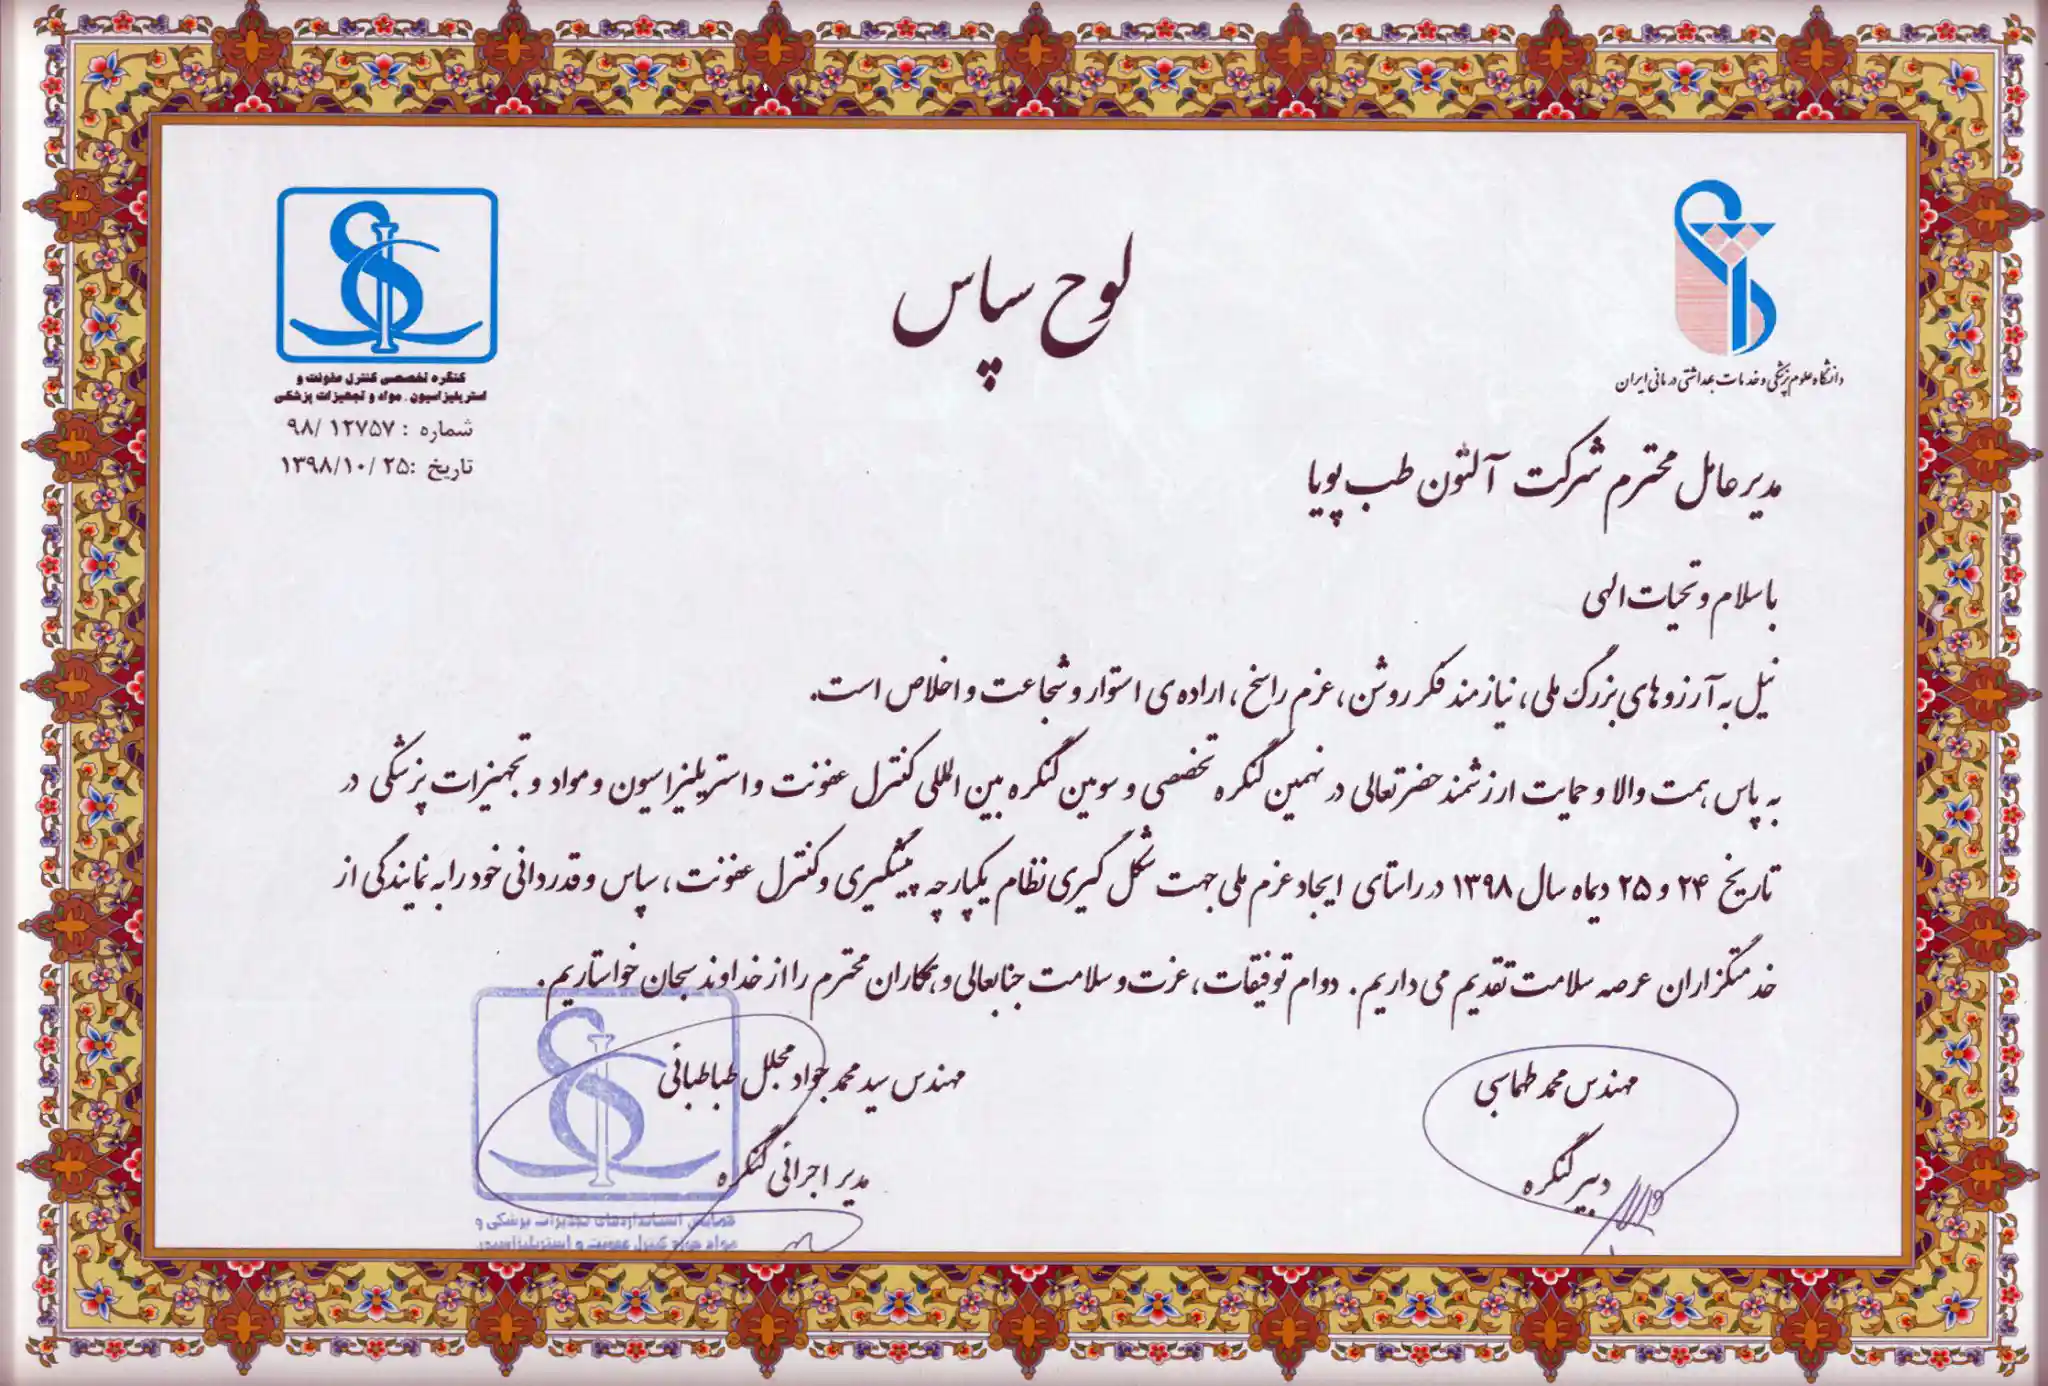 لوح سپاس
دانشگاه علوم پزشکی و خدمات بهداشتی درمانی ایران
کنگره تخصصی کنترل عفونت و
استریلیزاسیون . مواد و تجهیزات پزشکی
شماره : ۱۲۷۵۷ /۹۸
تاریخ :۲۵ /۱۳۹۸/۱۰
مدیر عامل محترم شرکت آلتون طب پویا
با سلام و تحیات الهی
نیل به آرزوهای بزرگ ملی، نیازمند فکر روشن، عزم راسخ، اراده ی استوار و شجاعت و اخلاص است.
به پاس همت والا و حمایت ارزشمند حضرتعالی در نهمین کنگره تخصصی و سومین کنگره بین المللی کنترل عفونت و استریلیزاسیون و مواد و تجهیزات پزشکی در
تاریخ ۲۴ و ۲۵ دیماه سال ۱۳۹۸ در راستای ایجاد عزم ملی جهت شکل گیری نظام یکپارچه پیشگیری و کنترل عفونت، سپاس و قدردانی خود را به نمایندگی از
خدمتگزاران عرصه سلامت تقدیم می داریم. دوام توفیقات، عزت و سلامت جنابعالی و همکاران محترم را از خداوند سبحان خواستاریم.
مهندس محمد طهماسبی
دبیر کنگره
مهندس سید محمد جواد مجلل طباطبائی
مدیر اجرائی کنگره
همایش استانداردهای تجهیزات پزشکی و
مواد حوزه کنترل عفونت و استریلیزاسیون